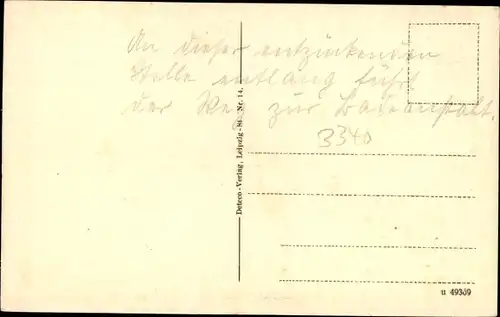 An dieser entzückenden
Stelle entlang führt
der Weg zur Badeanstalt.
3340
Deteco-Verlag, Leipzig-St. Nr. 14.
u 49369